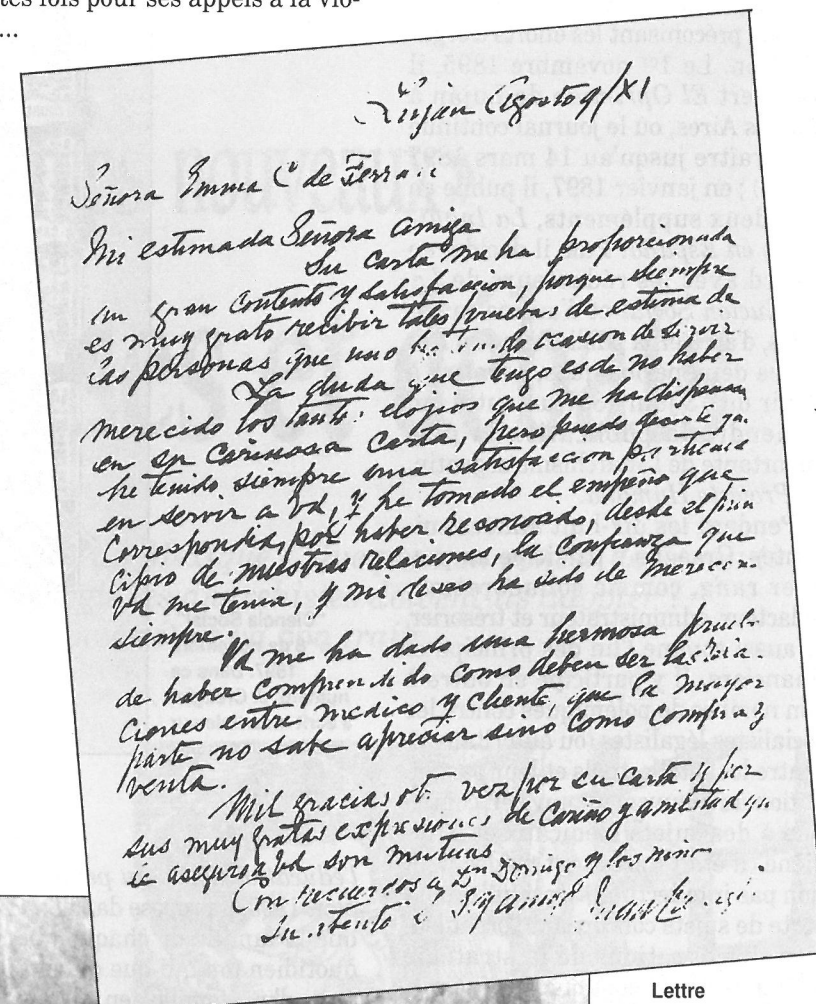 tes fois pour ses appels à la vio-
...
préconisant les
Le 1er novembre 1895, il
ert El
s Aires, où le journal continue
raître jusqu'au 14 mars
; en janvier 1897, il publie
deux suppléments, La
Luján Agosto 9/XI
Señora Emma C. de Ferrari
Mi estimada Señora amiga
Su carta me ha proporcionado
un gran contento y satisfaccion, porque siempre
es muy grato recibir tales pruebas de estima de
las personas que uno ha tenido ocasion de servir
La duda que tengo es de no haber
merecido los tantos elogios que me ha dispensa
en su cariñosa carta, pero puedo decirle que
he tenido siempre una satisfaccion particular
en servir a Vd, y he tomado el empeño que
correspondia, por haber reconocido, desde el prin
cipio de nuestras relaciones, la confianza que
Vd me tenia, y mi deseo ha sido de merecer
siempre.
Vd me ha dado una hermosa prueb
de haber comprendido como deben ser las rela
ciones entre medico y cliente que la mayor
parte no sabe apreciar sino como compra y
venta.
Mil gracias ot vez por su carta y por
sus muy gratas expresiones de cariño y amistad que
le aseguro a Vd son mutuas
Con recuerdos a Dn Domingo y los niños
Su atento y amigo Juan
Lettre